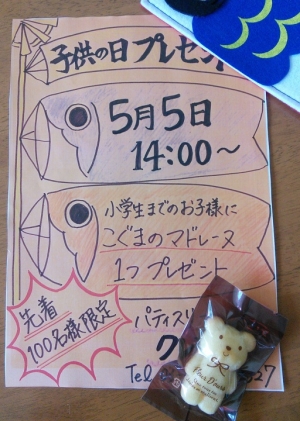 子供の日プレゼント
5月5日
14:00〜
小学生までのお子様に
こぐまのマドレーヌ
1つプレゼント
先着
100名様限定
パティス
Tel
27